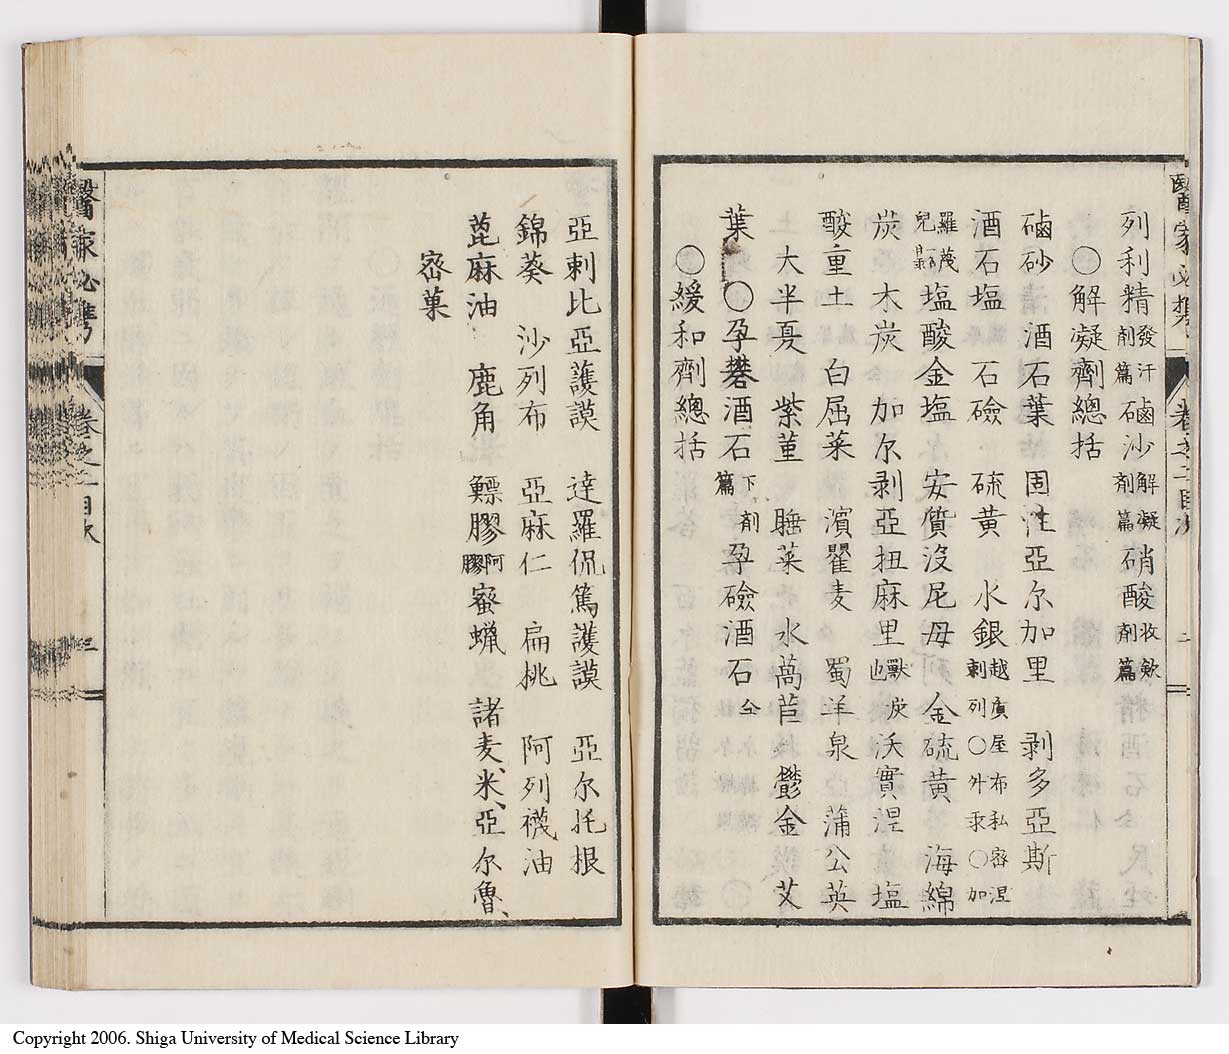 醫家必携 卷之二目次 二
列利精發汗劑篇 磠沙解凝劑篇 硝酸收斂劑篇
〇解凝劑總括
磠砂 酒石葉 固性亞尔加里 剥多亞斯
酒石塩 石礆 硫黄 水銀越質屋布私密涅刺列〇外表〇加
羅茂兒 塩酸金塩 安質沒尼毋 金硫黄 海綿
炭 木炭 加尔剥亞扭麻里獸炭也 沃實涅塩
酸重土 白屈菜 濱瞿麦 蜀羊泉 蒲公英
大半夏 紫菫 睡菜 水萵苣 鬱金 艾
葉 〇孕礬酒石下劑篇 孕礆酒石仝
〇緩和劑總括
亞剌比亞護謨 達羅侃篤護謨 亞尔托根
錦葵 沙列布 亞麻仁 扁桃 阿列襪油
蓖麻油 鹿角 鰾膠阿膠 蜜蝋 諸麦、米、亞尔魯、
密菓
醫家必携 卷之二目次 三
Copyright 2006. Shiga University of Medical Science Library